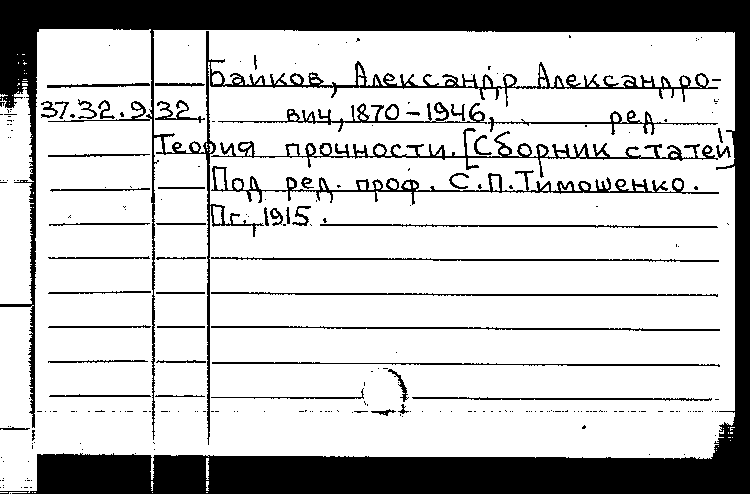 Байков, Александр Александро-
37.32.9.32. вич, 1870-1946, ред.
Теория прочности. [Сборник статей]
Под ред. проф. С.П.Тимошенко.
Пг., 1915.